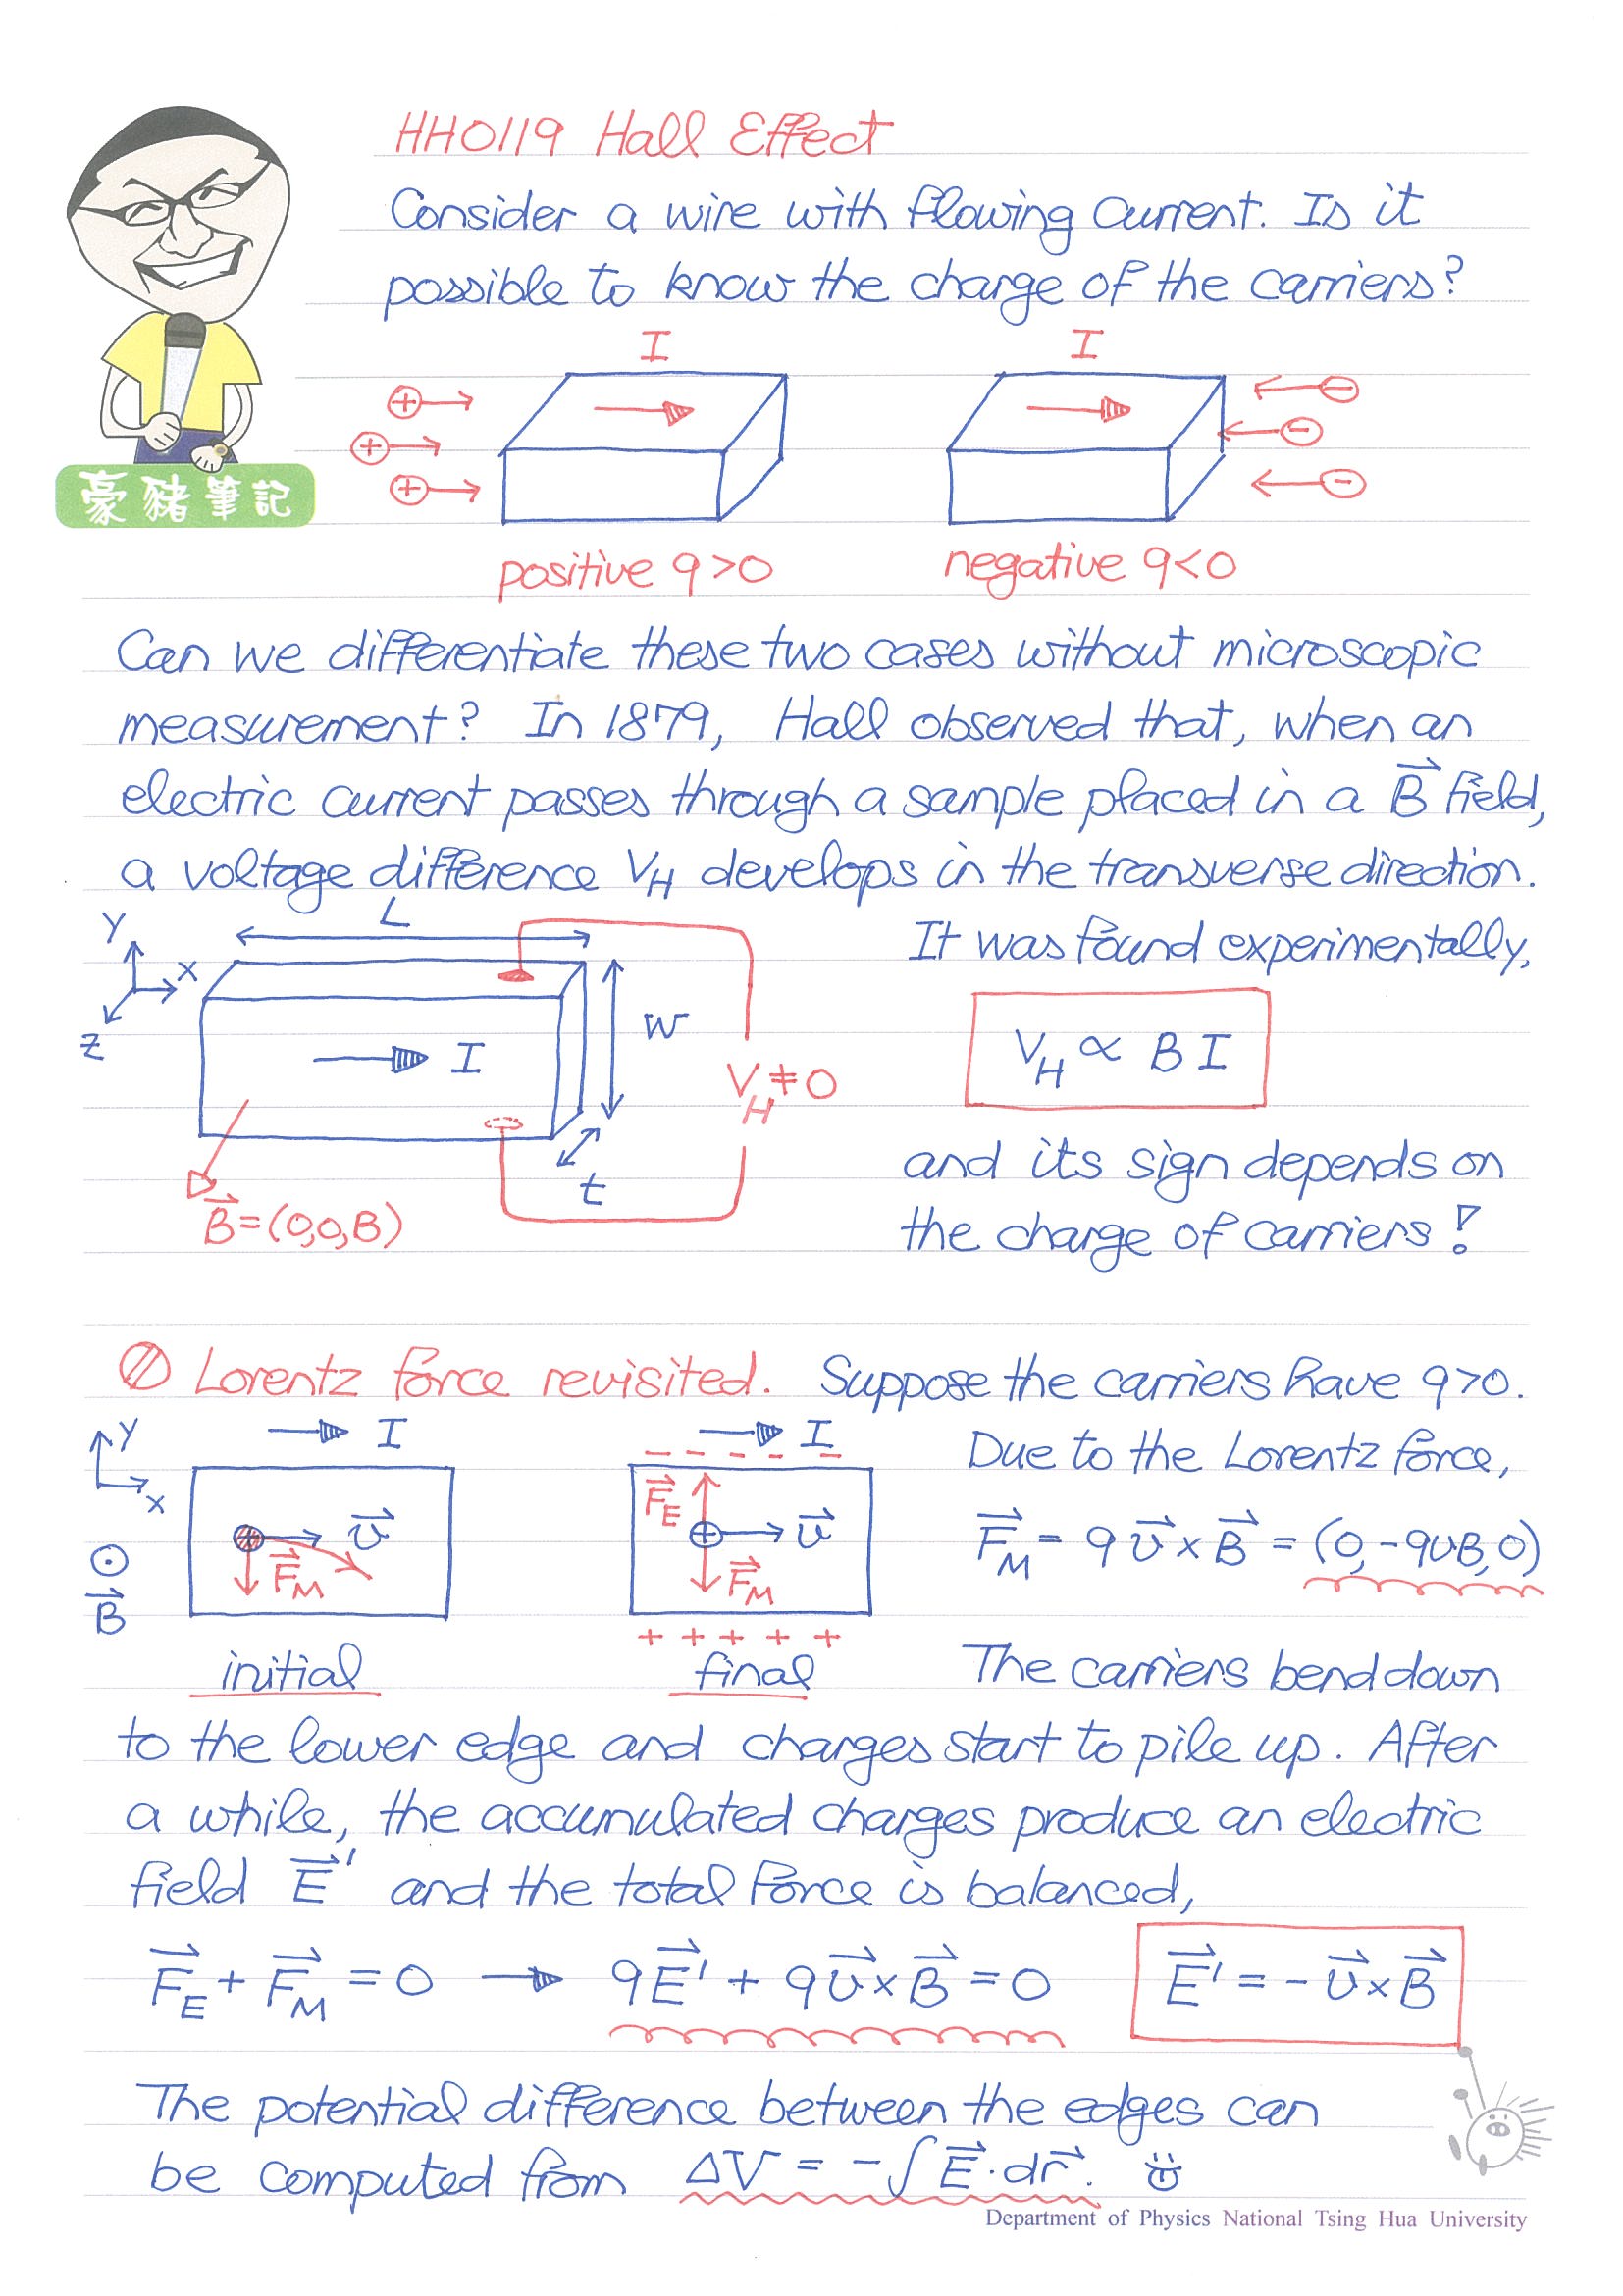 HH0119 Hall Effect
Consider a wire with flowing current. Is it
possible to know the charge of the carriers?
I
I
+
+
+
-
-
-
豪豬筆記
positive q>0
negative q<0
Can we differentiate these two cases without microscopic
measurement? In 1879, Hall observed that, when an
electric current passes through a sample placed in a B⃗ field,
a voltage difference V_H develops in the transverse direction.
Y
X
Z
L
I
W
t
V_H≠0
B⃗=(0,0,B)
It was found experimentally,
V_H ∝ B I
and its sign depends on
the charge of carriers!
Lorentz force revisited. Suppose the carriers have q>0.
Y
x
B⃗
I
+
v⃗
F⃗_M
initial
I
- - - - -
F⃗_E
+
v⃗
F⃗_M
+ + + + +
final
Due to the Lorentz force,
F⃗_M = q v⃗ × B⃗ = (0, -qvB, 0)
The carriers bend down
to the lower edge and charges start to pile up. After
a while, the accumulated charges produce an electric
field E⃗' and the total force is balanced,
F⃗_E + F⃗_M = 0 → qE⃗' + qv⃗×B⃗ = 0 E⃗' = -v⃗×B⃗
The potential difference between the edges can
be computed from ΔV = -∫E⃗·dr⃗.
Department of Physics National Tsing Hua University